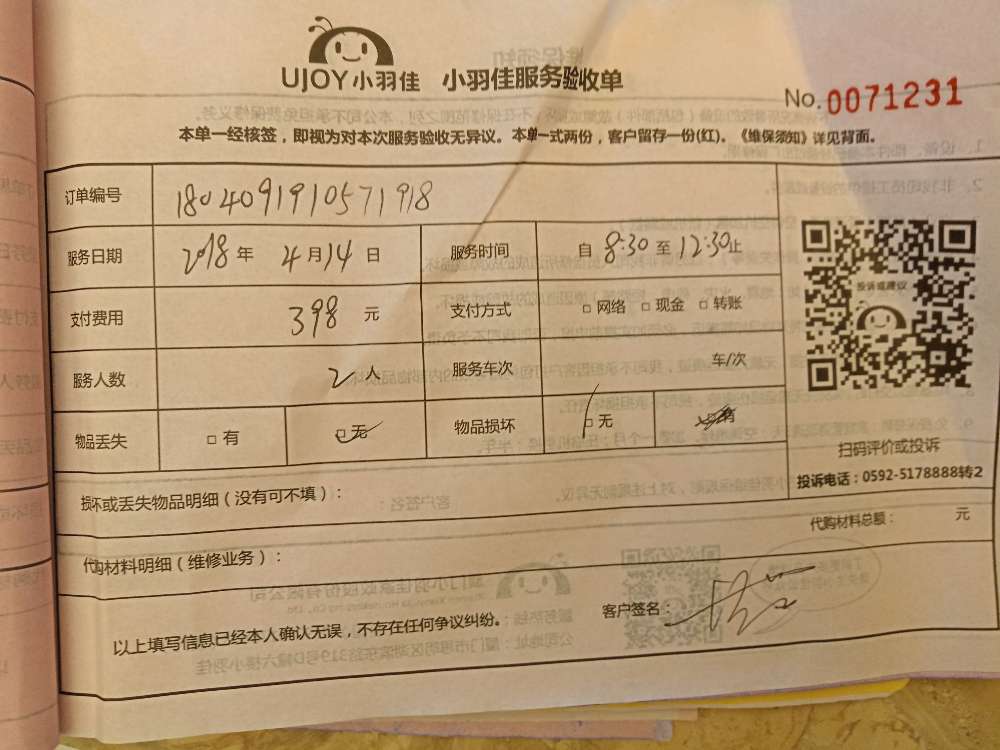 UJOY小羽佳 小羽佳服务验收单
No. 0071231
本单一经核签，即视为对本次服务验收无异议。本单一式两份，客户留存一份(红)。《维保须知》详见背面。
订单编号 1804091910571918
服务日期 2018年 4月14日 服务时间 自 8:30 至 12:30 止
支付费用 398 元 支付方式 □ 网络 □ 现金 □ 转账
投诉或建议
服务人数 2人 服务车次 车/次
物品丢失 □ 有 □ 无 物品损坏 □ 无 □ 有
扫码评价或投诉
投诉电话：0592-5178888转2
损坏或丢失物品明细（没有可不填）：
代购材料总额： 元
代购材料明细（维修业务）：
以上填写信息已经本人确认无误，不存在任何争议纠纷。 客户签名：